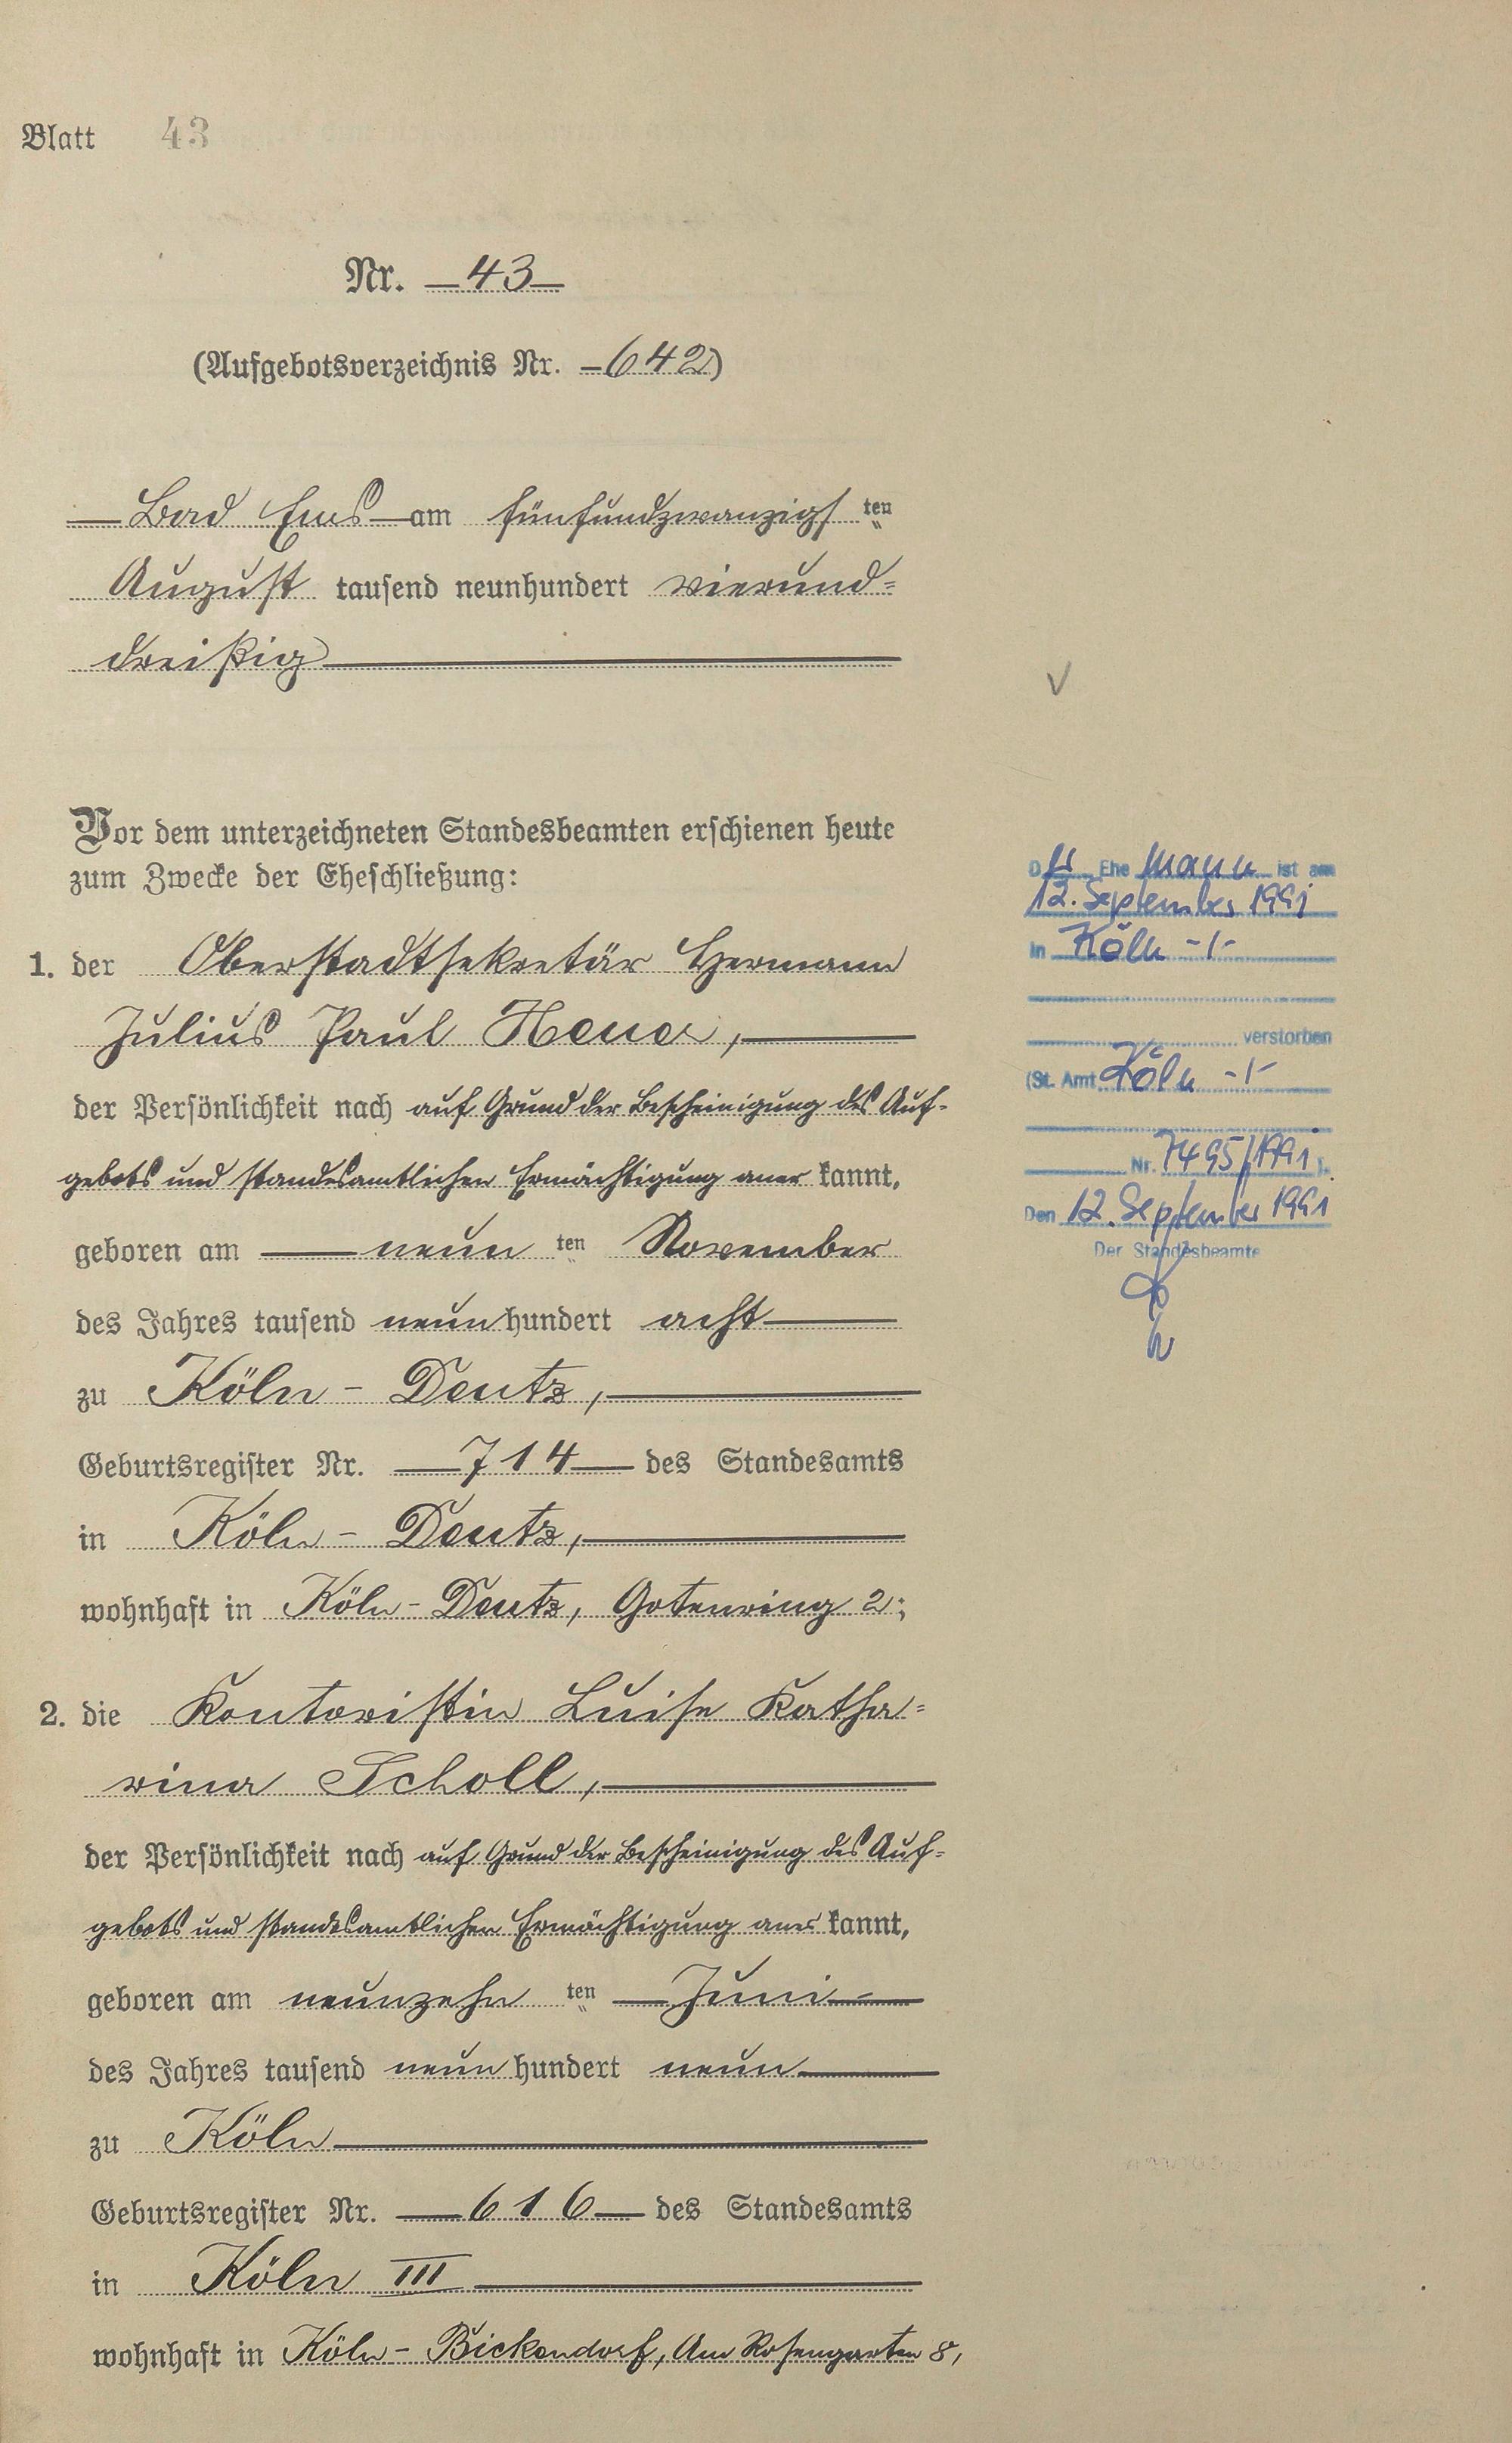 Blatt 43
Nr. 43
(Aufgebotsverzeichnis Nr. 642)
Bad Ems am fünfundzwanzigsten
August tausend neunhundert vierund=
dreißig
Vor dem unterzeichneten Standesbeamten erschienen heute
zum Zwecke der Eheschließung:
1. der Oberstadtsekretär Hermann
Julius Paul
der Persönlichkeit nach auf Grund der Bescheinigung des Auf-
gebots und standesamtlichen Ermächtigung aner kannt,
geboren am neun ten November
des Jahres tausend neun hundert acht
zu Köln - Deutz,
Geburtsregister Nr. 714 des Standesamts
in Köln - Deutz,
wohnhaft in Köln - Deutz, Gotenring 2;
2. die Kontoristin Luise Katha=
rina Scholl,
der Persönlichkeit nach auf Grund der Bescheinigung des Auf=
gebots und standesamtlichen Ermächtigung aner kannt,
geboren am neunzehn ten Juni
des Jahres tausend neun hundert neun
zu Köln
Geburtsregister Nr. 616 des Standesamts
in Köln III
wohnhaft in Köln - Bickendorf, Am Rosengarten 8,
V
Der Ehe mann ist am
12. September 1991
in Köln -/-
verstorben
(St. Amt Köln -/-
Nr. 7495/1991).
Den 12. September 1991
Der Standesbeamte